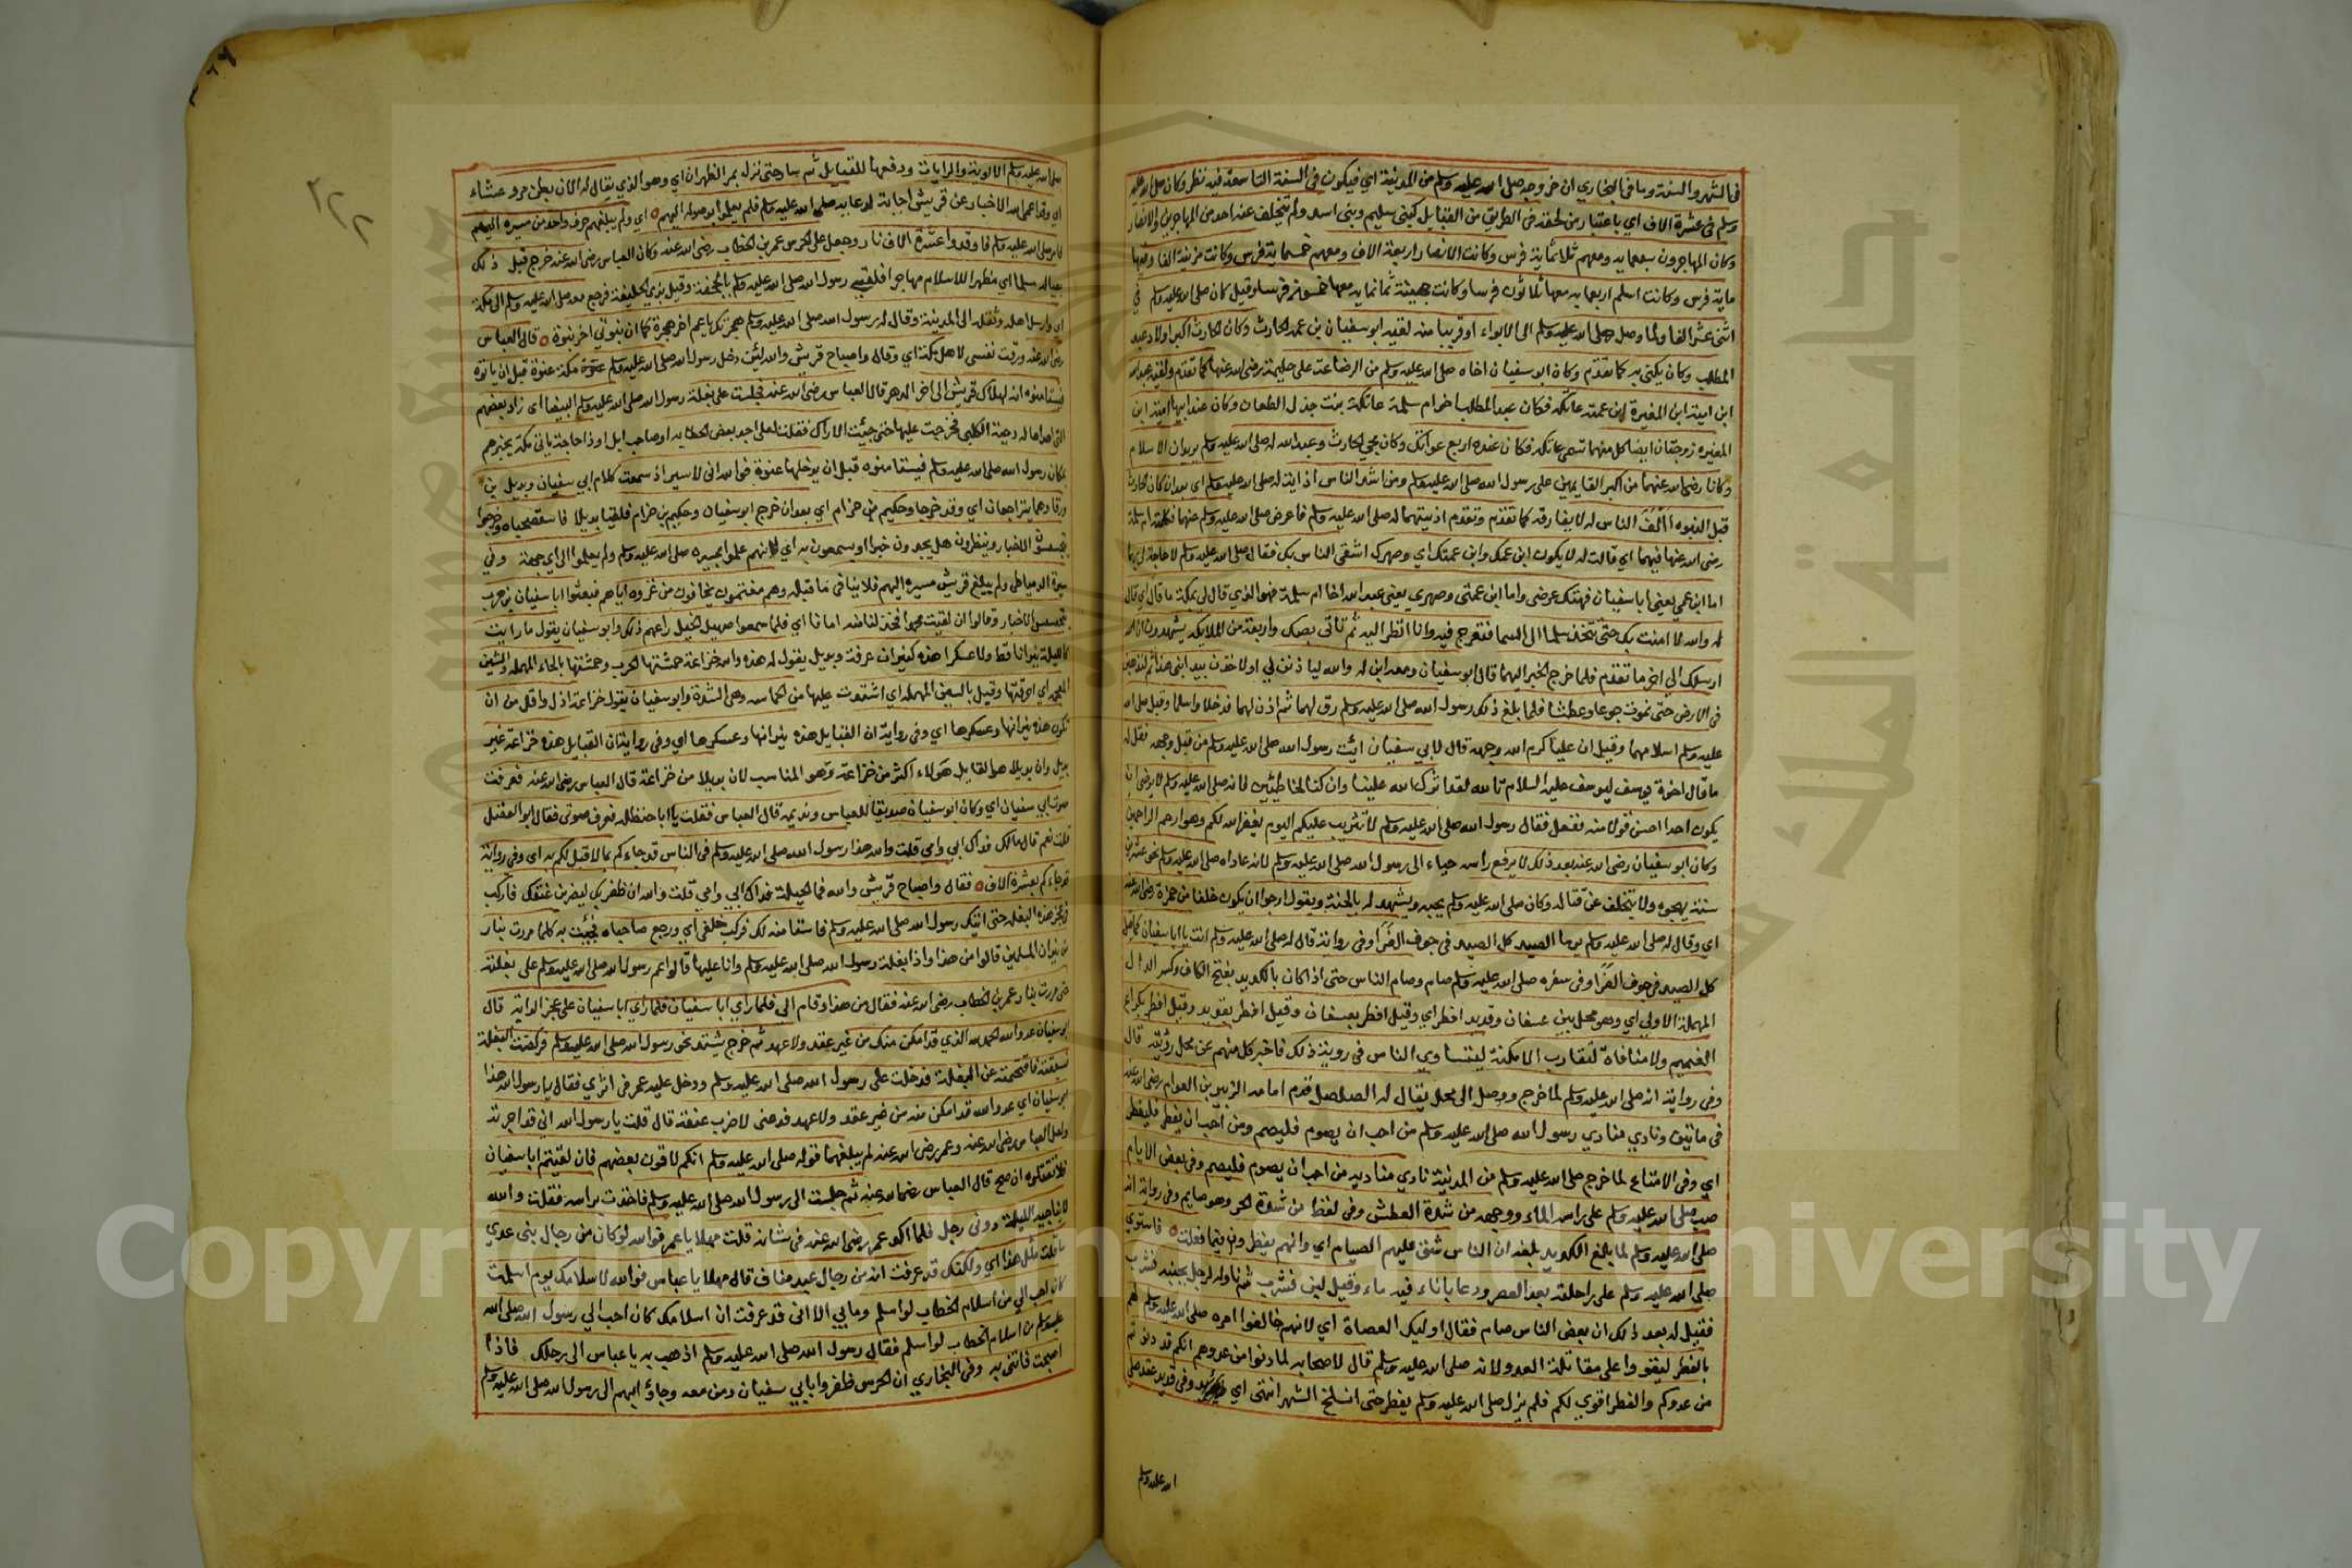 في الشهر والسنة وما في البخاري ان خروجه صلى الله عليه وسلم من المدينة اي فيكون في السنة التاسعة فيه نظر وكان صلى الله عليه
وسلم في عشرة الاف اي باعتبار من لحقه في الطريق من القبايل كبني سليم وبني اسد ولم يتخلف عنه احد من المهاجرين والانصار
وكان المهاجرون سبعمايه ومعهم ثلاثماية فرس وكانت الانصار اربعة الاف ومعهم خمسماية فرس وكانت مزينة الفا وفيها
ماية فرس وكانت اسلم اربعمايه معها ثلاثون فرسا وكانت جهينة ثمانمايه معها خمسون فرسا وقيل كان صلى الله عليه وسلم في
اثنى عشر الفا ولما وصل صلى الله عليه وسلم الى الابواء او قريبا منه لقيه ابو سفيان بن عمه الحارث وكان الحارث اكبر اولاد عبد
المطلب وكان يكنى به كما تقدم وكان ابو سفيان اخاه صلى الله عليه وسلم من الرضاعة على حليمة رضي الله عنها كما تقدم ولقيه عبد الله
ابن امية ابن المغيرة ابن عمته عاتكه فكان عبد المطلب اخو ام سلمة عاتكة بنت جذل الطعان وكان عند ابيها امية ابن
المغيره زوجتان ايضا كل منهما تسمى عاتكه فكان عنده اربع عواتك وكان مجي الحارث وعبد الله له صلى الله عليه وسلم يريدان الاسلام
وكانا رضي الله عنهما من اكبر القايمين على رسول الله صلى الله عليه وسلم ومن اشد الناس اذاية له صلى الله عليه وسلم اي بعد ان كان الحارث
قبل النبوه األف الناس له لا يفارقه كما تقدم وتقدم اذيتهما له صلى الله عليه وسلم فاعرض صلى الله عليه وسلم عنهما فكلمته ام سلمة
رضى الله عنها فيهما اي قالت له لا يكون ابن عمك وابن عمتك اي وصهرك اشقى الناس بك فقال صلى الله عليه وسلم لا حاجة لي بهما
اما ابن عمي يعني ابا سفيان فهتك عرضى واما ابن عمتي وصهري يعني عبد الله اخا ام سلمة فهو الذي قال لي بمكة ما قال اي قال
له والله لا امنت بك حتى تتخذ سلما الى السما فتعرج فيه وانا انظر اليه ثم تاتى بصك واربعة من الملايكه يشهدون ان الله
ارسلك الى اخر ما تقدم فلما خرج الخبر اليهما قال ابو سفيان ومعه ابن له والله لياذنن لي اولاخذن بيد ابنى هذا ثم لنذهبن
في الارض حتى نموت جوعا وعطشا فلما بلغ ذلك رسول الله صلى الله عليه وسلم رق لهما ثم اذن لهما فدخلا واسلما وقبل صلى الله
عليه وسلم اسلامهما وقيل ان عليا كرم الله وجهه قال لابي سفيان ائت رسول الله صلى الله عليه وسلم من قبل وجهه فقل له
ما قال اخوة يوسف ليوسف عليه السلام تالله لقد اثرك الله علينا وان كنا لخاطئين فانه صلى الله عليه وسلم لا يرضى ان
يكون احدا احسن قولا منه ففعل فقال رسول الله صلى الله عليه وسلم لا تثريب عليكم اليوم يغفر الله لكم وهو ارحم الراحمين
وكان ابو سفيان رضى الله عنه بعد ذلك لا يرفع راسه حياء الى رسول الله صلى الله عليه وسلم لانه عاداه صلى الله عليه وسلم نحو عشرين
سنة يهجوه ولا يتخلف عن قتاله وكان صلى الله عليه وسلم يحبه ويشهد له بالجنة ويقول ارجوا ان يكون خلفا من حمزة رضى الله عنه
اي وقال له صلى الله عليه وسلم يوما الصيد كل الصيد في جوف الفرا وفى رواية قال له صلى الله عليه وسلم انت يا ابا سفيان كما قيل
كل الصيد في جوف الفرا وفى سفره صلى الله عليه وسلم صام وصام الناس حتى اذا كان بالكديد بفتح الكاف وكسر الدال
المهملة الاولى اي وهو محل بين عسفان وقديد افطر اي وقيل افطر بعسفان وقيل افطر بقديد وقيل افطر بكراع
الغميم ولا منافاة لتقارب الامكنة ليتساوي الناس في روية ذلك فاخبر كل منهم عن محل رؤيته قال
وفى رواية انه صلى الله عليه وسلم لما خرج ووصل الى محل يقال له الصلصل قدم امامه الزبير بن العوام رضى الله عنه
في مائتين ونادي منادي رسول الله صلى الله عليه وسلم من احب ان يصوم فليصم ومن احب ان يفطر فليفطر
اي وفى الامتاع لما خرج صلى الله عليه وسلم من المدينة نادي مناديه من احب ان يصوم فليصم وفى بعض الايام
صب صلى الله عليه وسلم على راسه الماء ووجهه من شدة العطش وفى لفظ من شدة الحر وهو صايم وفى رواية انه
صلى الله عليه وسلم لما بلغ الكديد بلغه ان الناس شق عليهم الصيام اي وانهم ينظرون فيما فعلت فاستوي
صلى الله عليه وسلم على راحلته بعد العصر ودعا باناء فيه ماء وقيل لبن فشرب ثم ناوله لرجل بجنبه فشرب
فقيل له بعد ذلك ان بعض الناس صام فقال اوليك العصاة اي لانهم خالفوا امره صلى الله عليه وسلم لهم
بالفطر ليقووا على مقاتلة العدو ولانه صلى الله عليه وسلم قال لاصحابه لما دنوا من عدوهم انكم قد دنوتم
من عدوكم والفطر اقوي لكم فلم يزل صلى الله عليه وسلم يفطر حتى انسلخ الشهر انتهى اي وفى قديد عقد صلى
الله عليه وسلم
٢٢٢
صلى الله عليه وسلم الالوية والرايات ودفعها للقبايل ثم سار حتى نزل بمر الظهران اي وهو الذي يقال له الان بطن مرو عشاء
اي وقد اعمى الله الاخبار عن قريش اجابة لدعايه صلى الله عليه وسلم فلم يعلموا بوصوله اليهم اي ولم يبلغهم حرف واحد من مسيره اليهم
فامر صلى الله عليه وسلم فاوقدوا عشرة الاف نار وجعل على الحرس عمر بن الخطاب رضى الله عنه وكان العباس رضى الله عنه خرج قبل ذلك
بعياله مسلما اي مظهرا للاسلام مهاجرا فلقي رسول الله صلى الله عليه وسلم بالجحفة وقيل بذي الحليفة فرجع معه صلى الله عليه وسلم الى مكة
اي وارسل اهله وثقله الى المدينة وقال له رسول الله صلى الله عليه وسلم هجرتك يا عم اخر هجرة كما ان نبوتي اخر نبوة قال العباس
رضى الله عنه ورقت نفسى لاهل مكة اي وقال واصباح قريش والله لئن دخل رسول الله صلى الله عليه وسلم مكة عنوة قبل ان ياتوه
فيستامنوه انه لهلاك قريش الى اخر الدهر قال العباس رضى الله عنه فجلست على بغلة رسول الله صلى الله عليه وسلم البيضا اي زاد بعضهم
التي اهداها له دحية الكلبى فخرجت عليها حتى جئت الاراك فقلت لعلى اجد بعض الحطابه او صاحب ابل او ذا حاجة ياتى مكة يخبرهم
بمكان رسول الله صلى الله عليه وسلم فيستامنوه قبل ان يدخلها عنوة فوالله انى لاسير اذ سمعت كلام ابي سفيان وبديل بن
ورقا وهما يتراجعان اي وقد خرجا وحكيم بن حزام اي بعد ان خرج ابو سفيان وحكيم بن حزام فلقيا بديلا فاستصحباه وخرجوا
يتجسسون الاخبار وينظرون هل يجدون خبرا او يسمعون به اي لانهم علموا بمسيره صلى الله عليه وسلم ولم يعلموا الى اي جهة وفي
سيرة الدمياطى ولم يبلغ قريش مسيره اليهم فلا ينافي ما قبله وهم مغتمون يخافون من غزوه اياهم فبعثوا ابا سفيان بن حرب
يتجسس الاخبار وقالوا ان لقيت محمدا فخذ لنا منه امانا اي فلما سمعوا صهيل الخيل راعهم ذلك وابو سفيان يقول ما رايت
كالليلة نيرانا قط ولا عسكرا هذه كنيران عرفة وبديل يقول له هذه والله خزاعة حمشتها الحرب وحمشتها بالحاء المهمله والشين
المعجمه اي احرقتها وقيل بالسين المهمله اي اشتدت عليها من الحماسه وهى الشدة وابو سفيان يقول خزاعة اذل واقل من ان
تكون هذه نيرانها وعسكرها اي وفى رواية ان القايل هذه نيرانها وعسكرها اي وفى رواية ان القايل هذه خزاعة غير
بديل وان بديلا هو القايل هولاء اكثر من خزاعة وهو المناسب لان بديلا من خزاعة قال العباس رضى الله عنه فعرفت
صوت ابي سفيان اي وكان ابو سفيان صديقا للعباس ونديمه قال العباس فقلت يا ابا حنظله فعرف صوتي فقال ابو الفضل
قلت نعم قال مالك فداك ابي وامي قلت والله هذا رسول الله صلى الله عليه وسلم في الناس قد جاءكم بما لا قبل لكم به اي وفى رواية
قد جاءكم بعشرة الاف فقال واصباح قريش والله فما الحيلة فداك ابي وامي قلت والله ان ظفر بك ليضربن عنقك فاركب
في عجز هذه البغله حتى اتيك رسول الله صلى الله عليه وسلم فاستامنه لك فركب خلفي اي ورجع صاحباه فجئت به كلما مررت بنار
من نيران المسلمين قالوا من هذا واذا بغلة رسول الله صلى الله عليه وسلم وانا عليها قالوا عم رسول الله صلى الله عليه وسلم على بغلته
حتى مررت بنار عمر بن الخطاب رضى الله عنه فقال من هذا وقام الي فلما راي ابا سفيان على عجز الدابة قال
ابو سفيان عدو الله الحمد لله الذي قد امكن منك من غير عقد ولا عهد ثم خرج يشتد نحو رسول الله صلى الله عليه وسلم فركضت البغلة
فسبقته فاقتحمت عن البغلة فدخلت على رسول الله صلى الله عليه وسلم ودخل عليه عمر في اثري فقال يا رسول الله هذا
ابو سفيان اي عدو الله قد امكن منه من غير عقد ولا عهد فدعنى لاضرب عنقه قال قلت يا رسول الله اني قد اجرته
ولعل العباس رضى الله عنه وعمر رضى الله عنه لم يبلغهما قوله صلى الله عليه وسلم انكم لاقون بعضهم فان لقيتم ابا سفيان
فلا تقتلوه ان صح قال العباس رضى الله عنه ثم جلست الى رسول الله صلى الله عليه وسلم فاخذت براسه فقلت والله
لا يناجيه الليلة دونى رجل فلما اكثر عمر رضى الله عنه في شانه قلت مهلا يا عمر فوالله لو كان من رجال بنى عدي
ما قلت مثل هذا اي ولكنك قد عرفت انه من رجال عبد مناف قال مهلا يا عباس فوالله لاسلامك يوم اسلمت
كان احب الي من اسلام الخطاب لو اسلم وما بي الا انى قد عرفت ان اسلامك كان احب الى رسول الله صلى الله
عليه وسلم من اسلام الخطاب لو اسلم فقال رسول الله صلى الله عليه وسلم اذهب به يا عباس الى رحلك فاذا
اصبحت فاتنى به وفى البخاري ان الحرس ظفروا بابي سفيان ومن معه وجاؤا بهم الى رسول الله صلى الله عليه وسلم
Copyright © King Saud University
جامعة الملك سعود